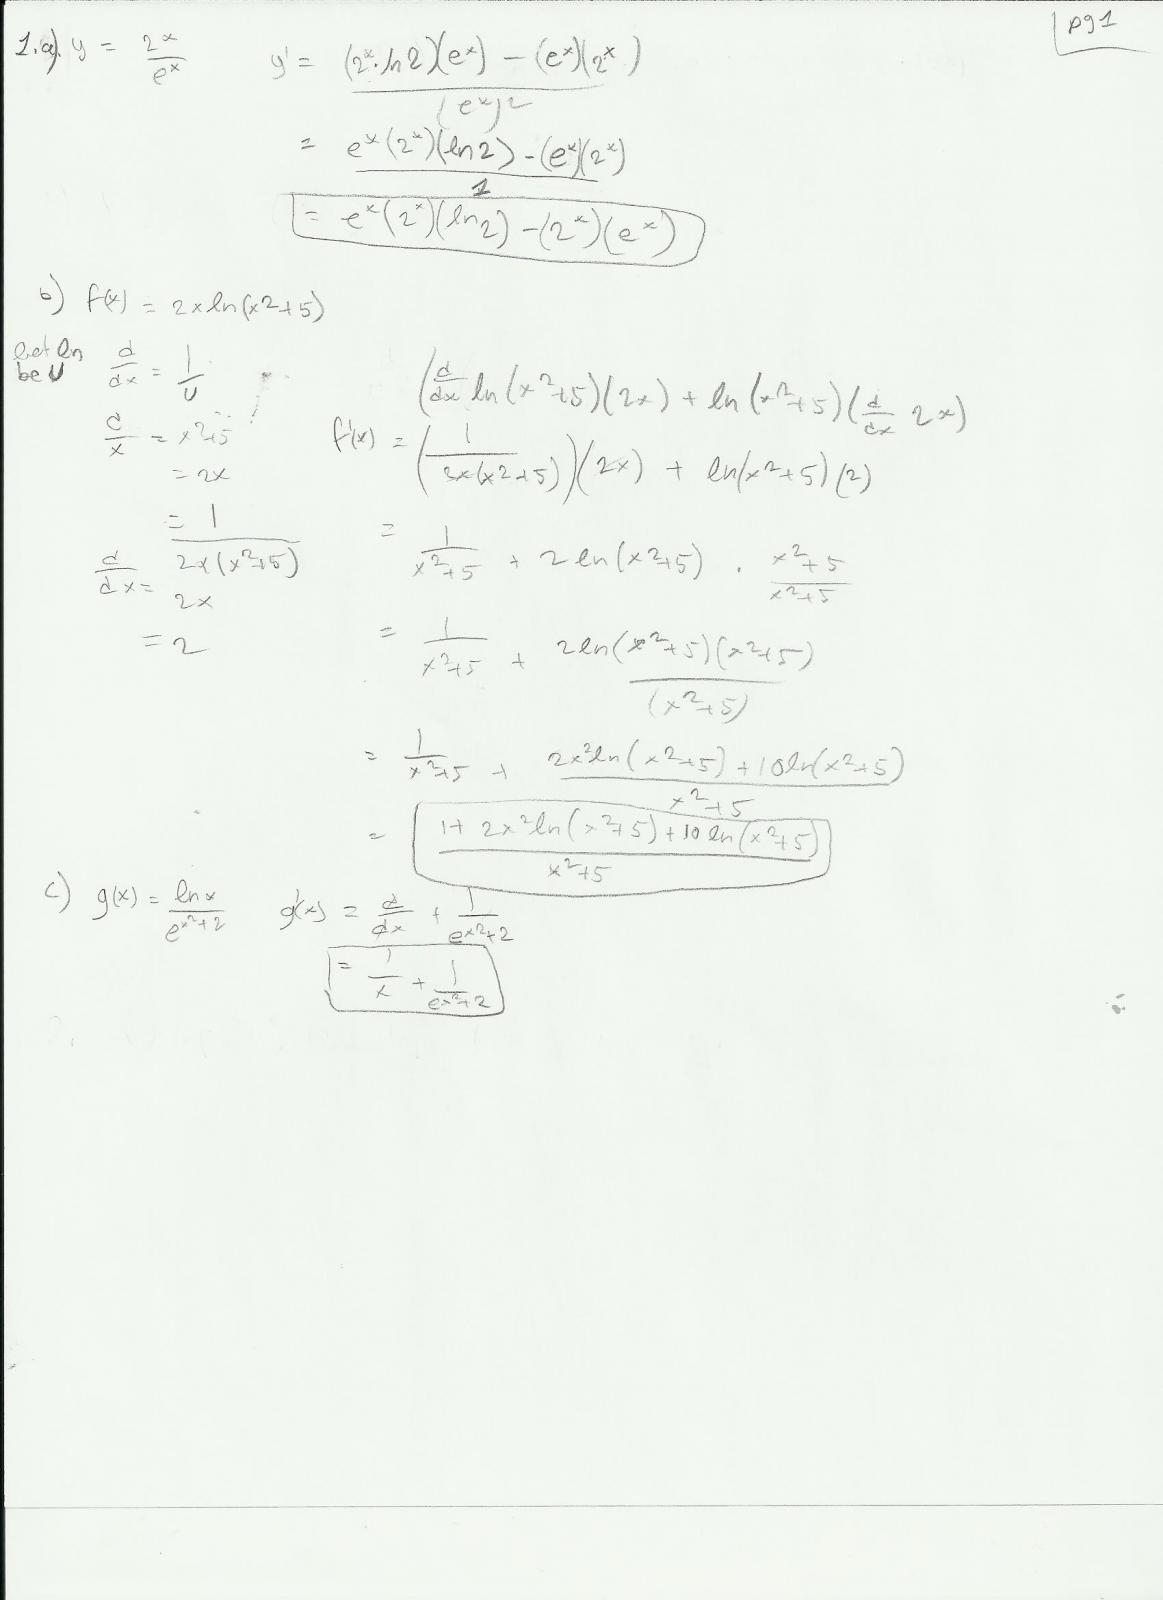 pg1
1.a). y = 2^x/e^x   y' = (2^x·ln2)(e^x) - (e^x)(2^x)/(e^x)^2
= e^x(2^x)(ln2) - (e^x)(2^x)/1
= e^x(2^x)(ln2) - (2^x)(e^x)
b) f(x) = 2x ln(x^2+5)
let ln be U   d/dx = 1/U
(d/dx ln(x^2+5)(2x) + ln(x^2+5)(d/dx 2x)
d/x = x^2+5   f'(x) = (1/2x(x^2+5))(2x) + ln(x^2+5)(2)
= 2x
= 1/2x(x^2+5)   = 1/x^2+5 + 2ln(x^2+5) · x^2+5/x^2+5
d/dx = 2x
= 2   = 1/x^2+5 + 2ln(x^2+5)(x^2+5)/(x^2+5)
= 1/x^2+5 + 2x^2ln(x^2+5)+10ln(x^2+5)/x^2+5
= 1+2x^2ln(x^2+5)+10ln(x^2+5)/x^2+5
c) g(x) = lnx/e^x^2+2   g'(x) = d/dx + 1/e^x^2+2
= 1/x + 1/e^x^2+2